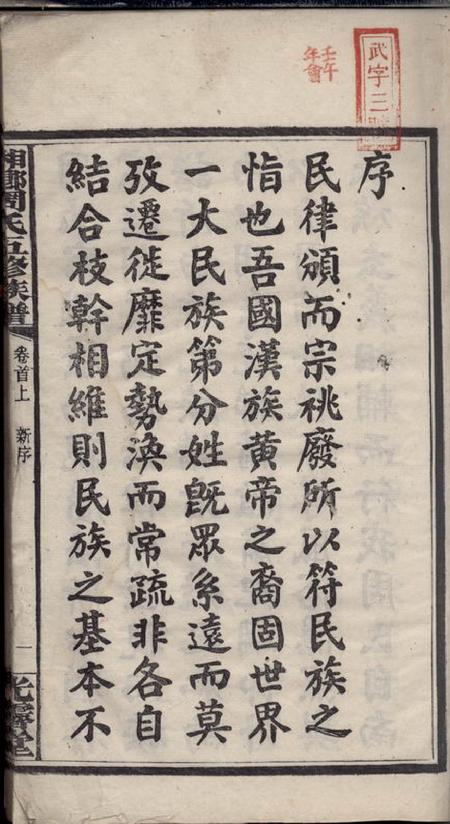 序
民律頒而宗祧廢所以符民族之
恉也吾國漢族黃帝之裔固世界
一大民族第分姓旣眾系遠而莫
攷遷徙靡定勢渙而常疏非各自
結合枝幹相維則民族之基本不
湘鄉周氏五修族譜
卷首上 新序
一
光霽堂
武字三
壬午
年會